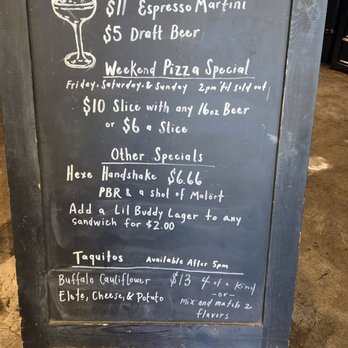 $11 Espresso Martini
$5 Draft Beer
Weekend Pizza Special
Friday, Saturday, & Sunday 2pm 'til sold out
$10 Slice with any 16oz Beer
or $6 a Slice
Other Specials
Hexe Handshake $6.66
PBR & a shot of Malört
Add a Lil Buddy Lager to any
sandwich for $2.00
Taquitos Available After 5pm
Buffalo Cauliflower $13 4 of a kind
Elote, Cheese, & Potato -or-
mix and match 2
flavors